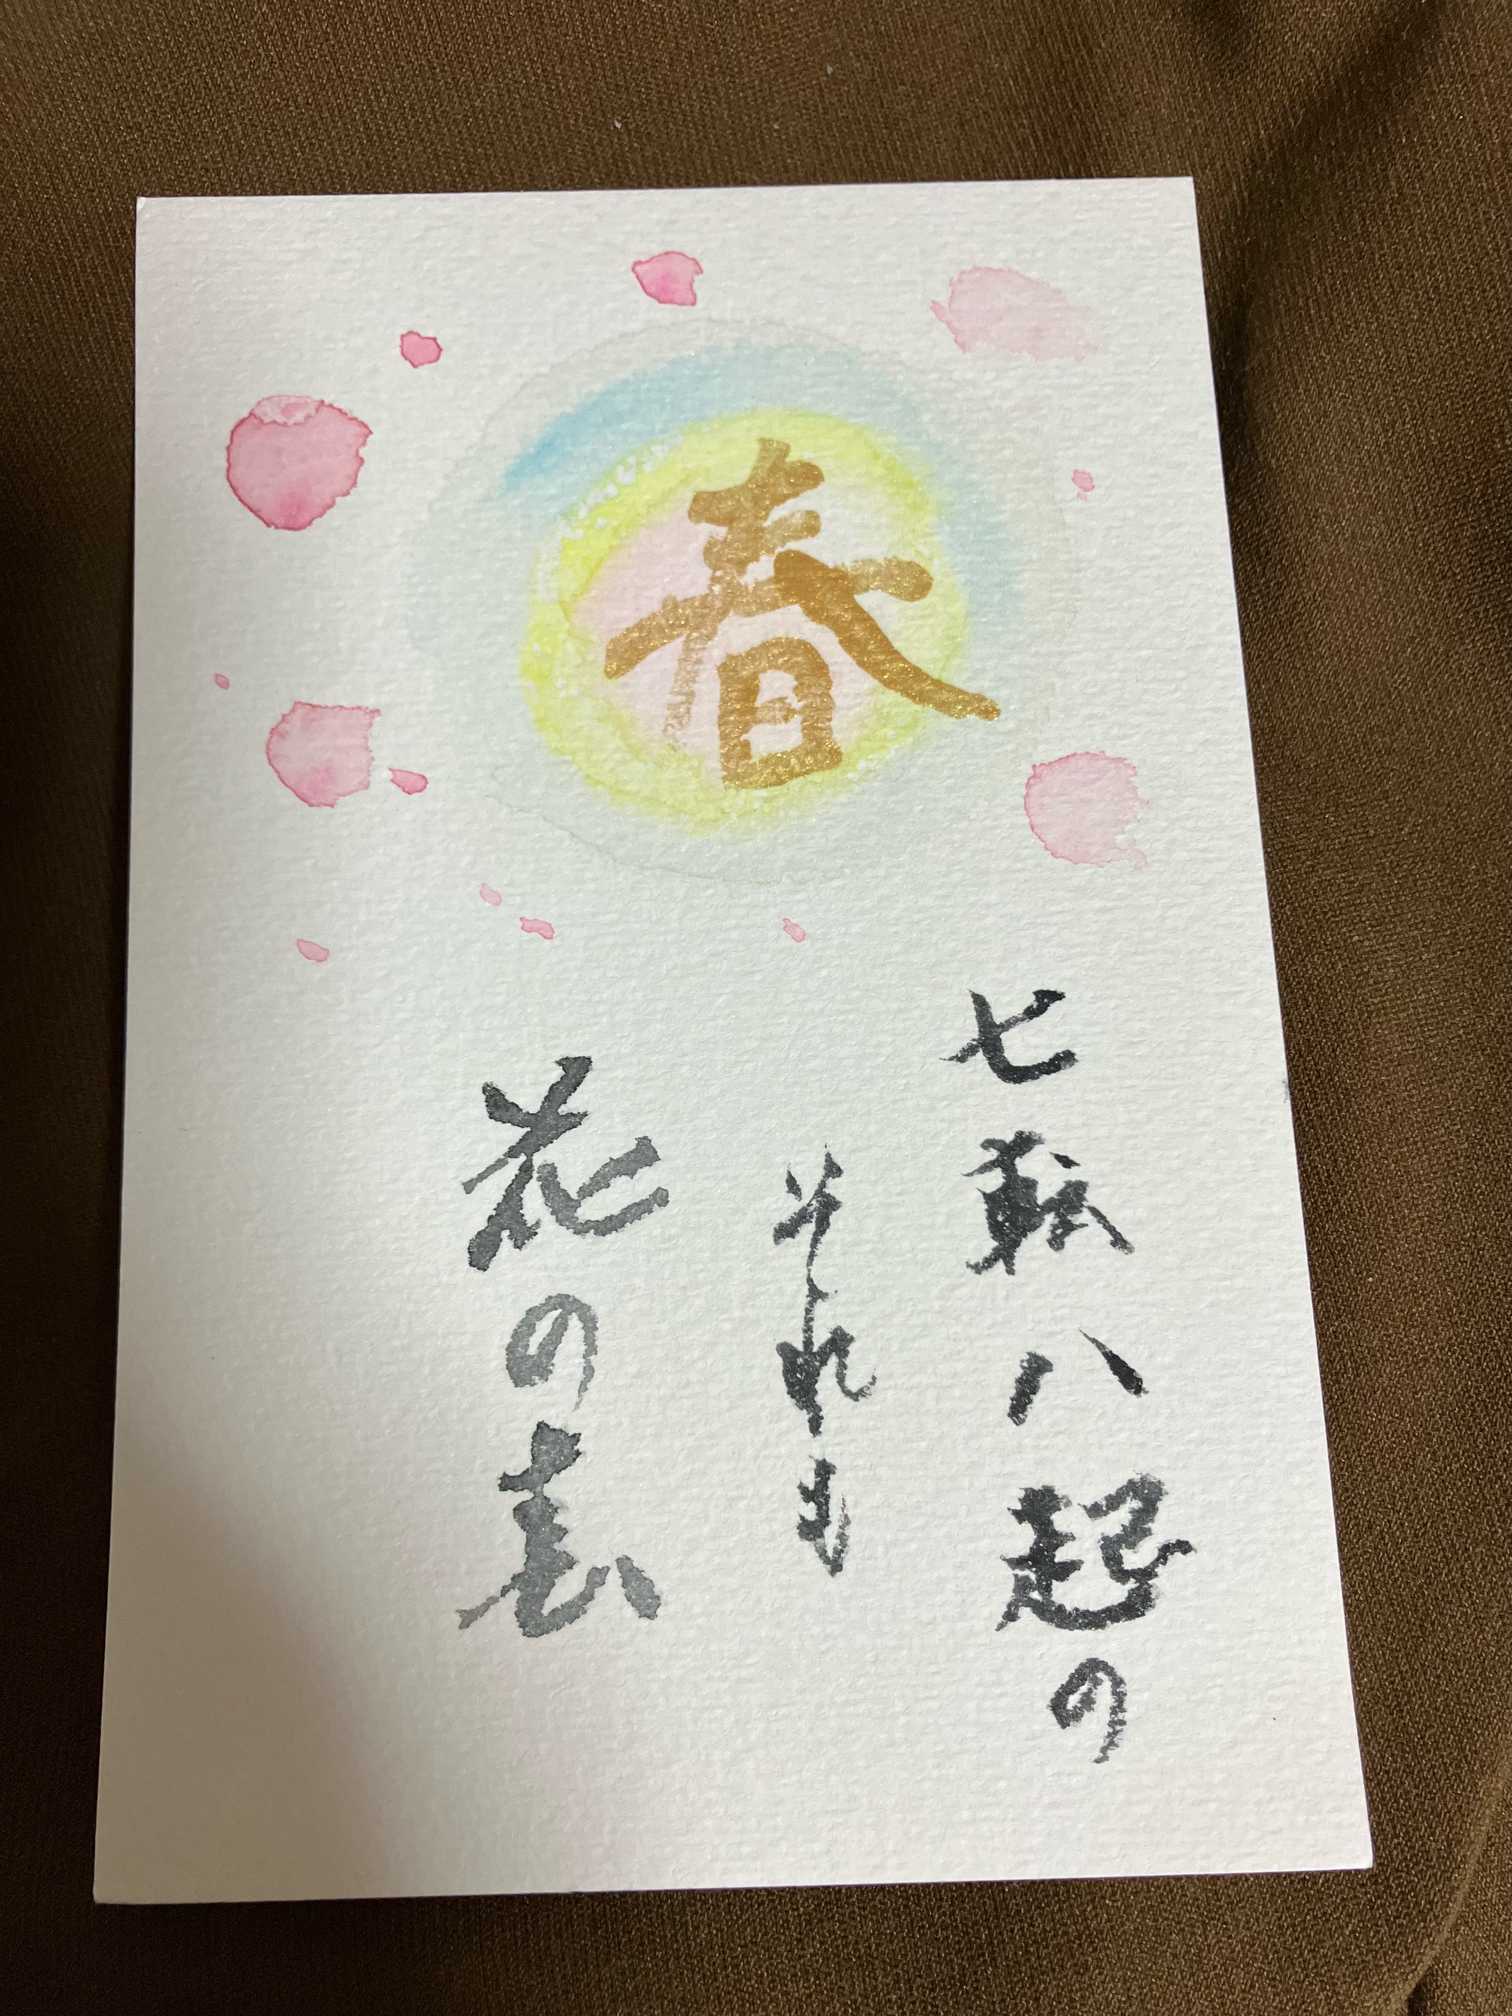 春
七転八起の
それも
花の春